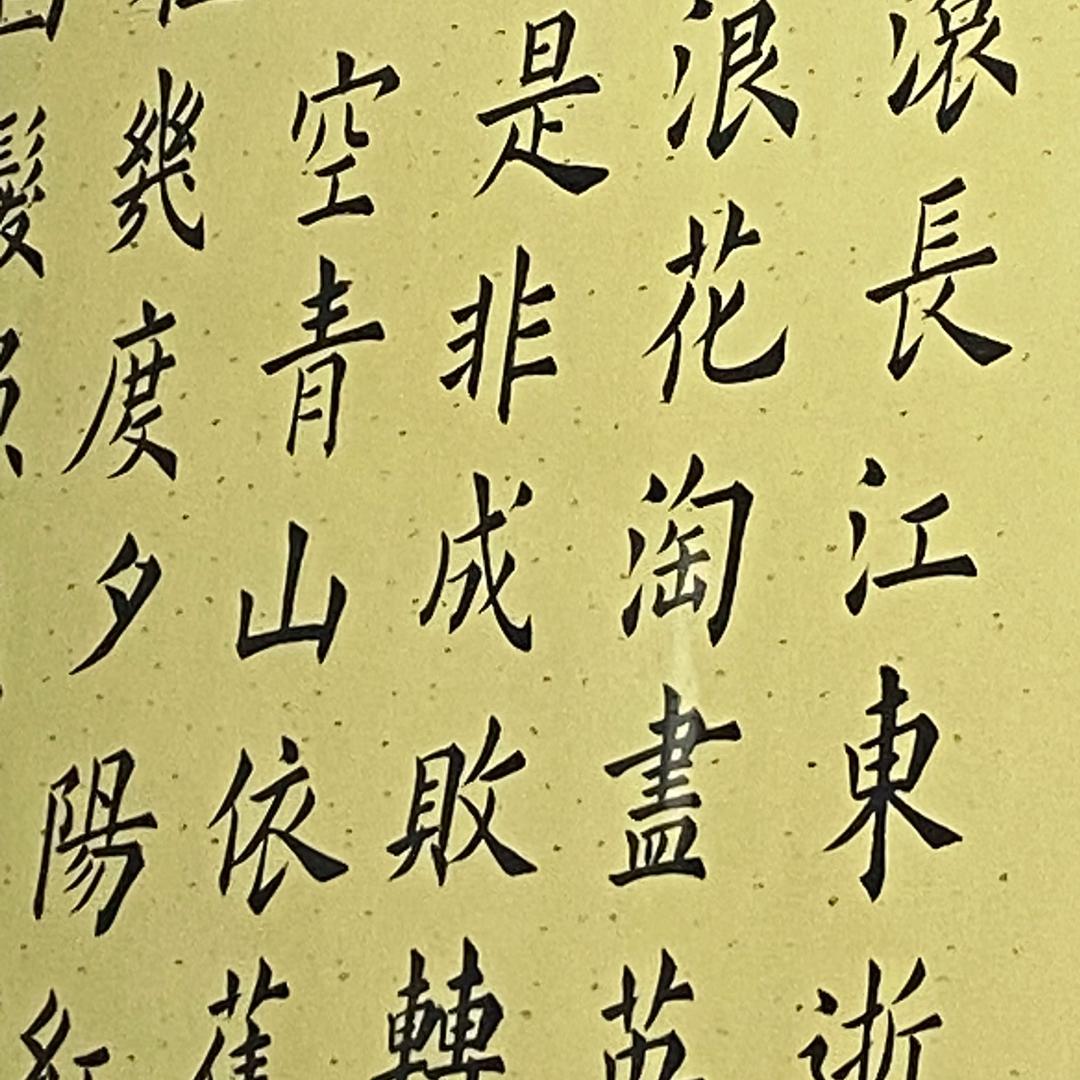 滾長江東逝
浪花淘盡英
是非成敗轉
空青山依舊
幾度夕陽紅
髮